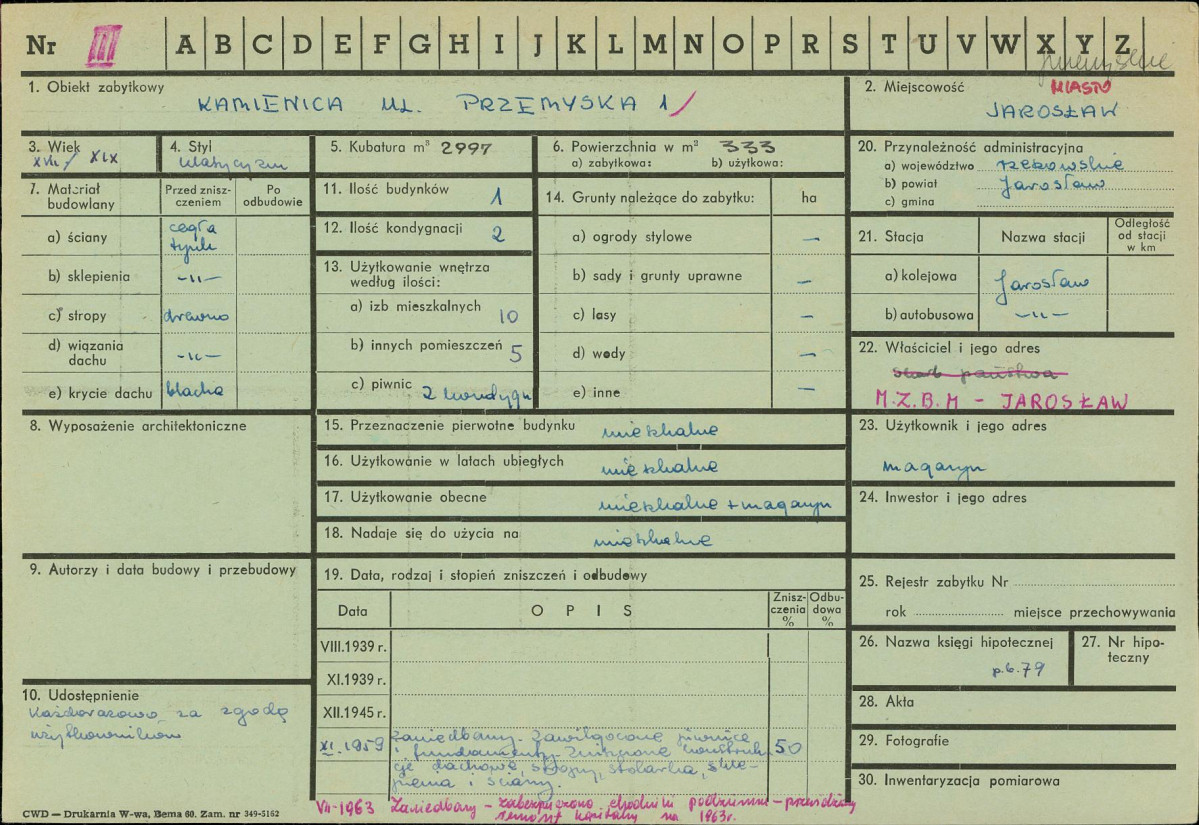 Nr III A B C D E F G H I J K L M N O P R S T U V W X Y Z
1. Obiekt zabytkowy
KAMIENICA UL. PRZEMYSKA 1/
2. Miejscowość MIASTO
JAROSŁAW
3. Wiek
XVIII/ XIX
4. Styl
klasycyzm
5. Kubatura m³ 2997
6. Powierzchnia w m² 333
a) zabytkowa: b) użytkowa:
20. Przynależność administracyjna
a) województwo rzeszowskie
b) powiat Jarosław
c) gmina
7. Materiał budowlany
Przed zniszczeniem
Po odbudowie
a) ściany cegła tynk
b) sklepienia —„—
c) stropy drewno
d) wiązania dachu —„—
e) krycie dachu blacha
11. Ilość budynków 1
12. Ilość kondygnacji 2
13. Użytkowanie wnętrza
według ilości:
a) izb mieszkalnych 10
b) innych pomieszczeń 5
c) piwnic 2 kondygn
14. Grunty należące do zabytku: ha
a) ogrody stylowe —
b) sady i grunty uprawne —
c) lasy —
d) wody —
e) inne —
21. Stacja Nazwa stacji Odległość od stacji w km
a) kolejowa Jarosław
b) autobusowa —„—
22. Właściciel i jego adres
skarb państwa
M.Z.B.M - JAROSŁAW
8. Wyposażenie architektoniczne
15. Przeznaczenie pierwotne budynku mieszkalne
16. Użytkowanie w latach ubiegłych mieszkalne
17. Użytkowanie obecne mieszkalne + magazyn
18. Nadaje się do użycia na mieszkalne
23. Użytkownik i jego adres
magazyn
24. Inwestor i jego adres
9. Autorzy i data budowy i przebudowy
19. Data, rodzaj i stopień zniszczeń i odbudowy
Data OPIS Zniszczenia % Odbudowa %
VIII.1939 r.
XI.1939 r.
XII.1945 r.
XI.1959 zaniedbany. Zawilgocone piwnice
i fundamenty. Zniszczone konstruk 50
cje dachowe, stropy, stolarka, skle-
pienia i ściany.
VII-1963 Zaniedbany - zabezpieczono chodniki podziemne -
remont kapitalny na 1963r.
25. Rejestr zabytku Nr
rok miejsce przechowywania
26. Nazwa księgi hipotecznej
p.b.79
27. Nr hipoteczny
28. Akta
29. Fotografie
30. Inwentaryzacja pomiarowa
10. Udostępnienie
Każdorazowo za zgodą
użytkowników
CWD — Drukarnia W-wa, Bema 60. Zam. nr 349-5162